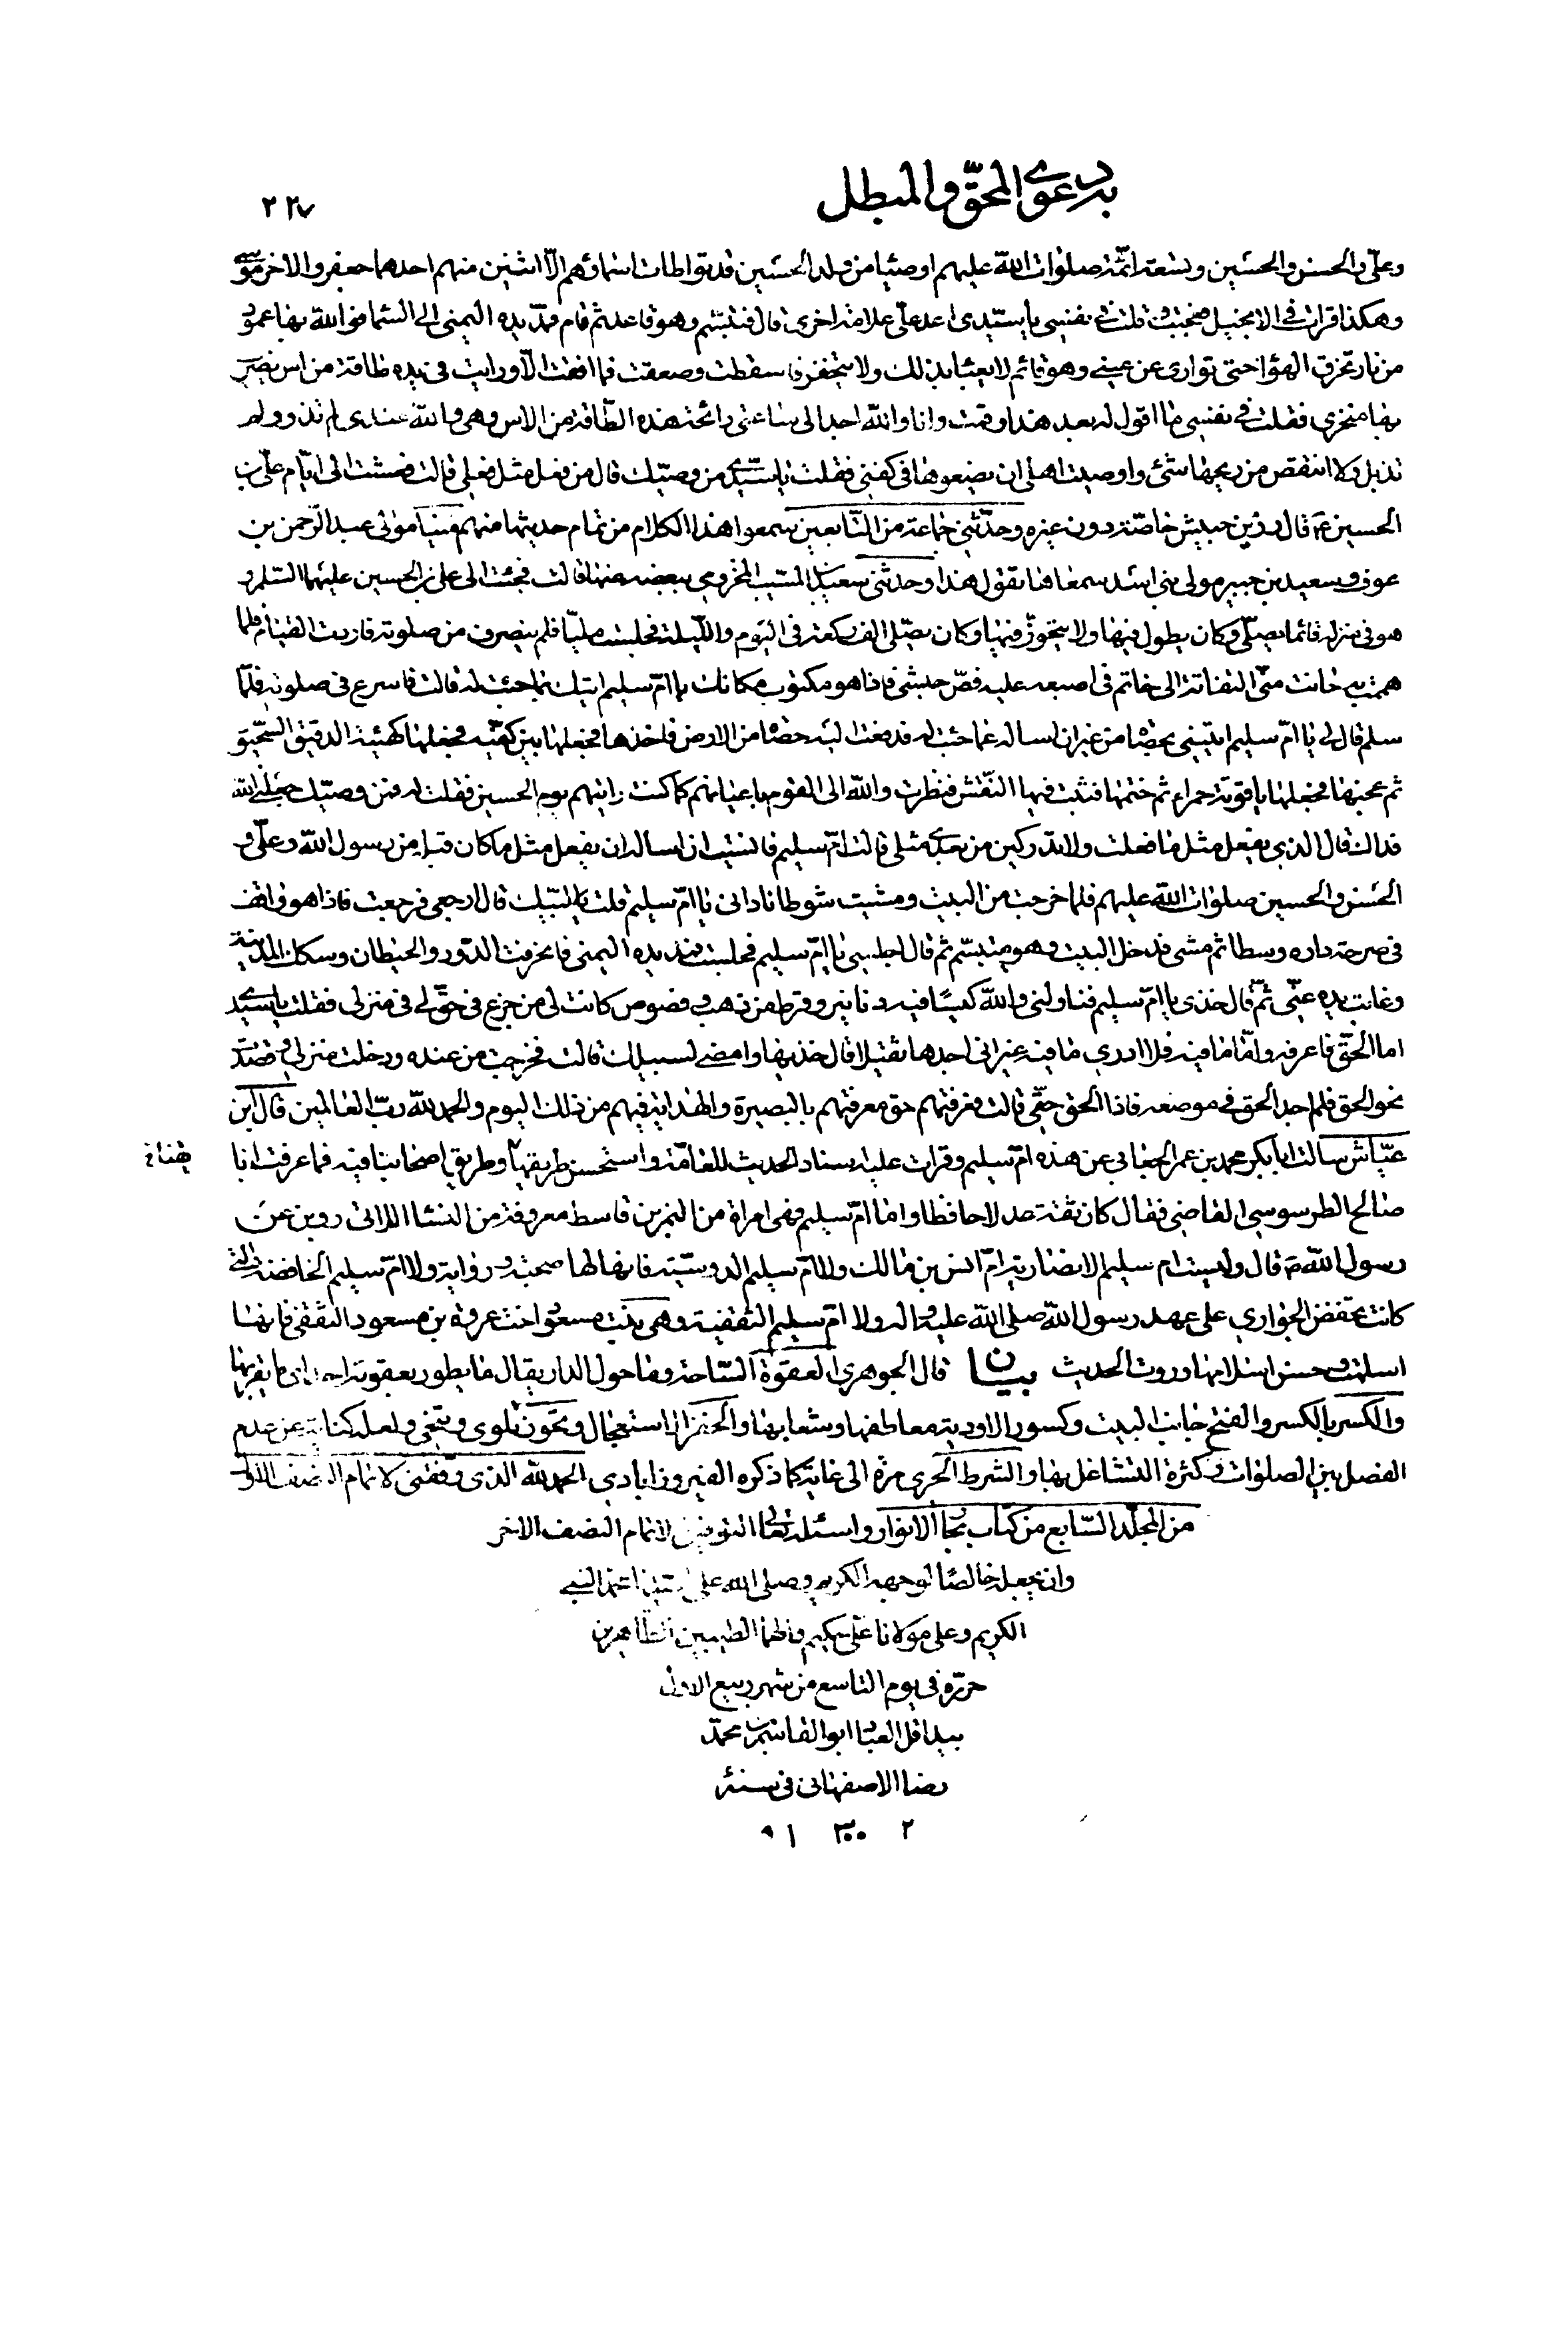 به دعوى المحقّ والمبطل
٢٢٧
وعلىّ والحسن والحسين وتسعة ائمّة صلوات الله عليهم اوصيا من ولد الحسين قد تواطات اسماؤهم الّا اثنين منهم احدهما جعفر والاخر موسى
وهكذا قرات فى الانجيل فعجبت وقلت فى نفسى يا سيّدى اعد علىّ علامة اخرى قال فتبسّم وهو قاعد ثم قام فمدّ يده اليمنى الى السّما فو الله بها عمود
من نار تخرق الهوا حتى توارى عن عينى وهو قائم لا يعبا بذلك ولا يتحفز فاسقطت وصعقت فما افقت الّا ورايت فى يده طاقة من اس يضرب
بها منخرى فقلت فى نفسى ما ذا اقول له بعد هذا وقمت وانا والله اجد الى ساعتى رائحة هذه الطّاقة من الاس وهى والله عندى لم تذو ولم
تذبل ولا انتقص من ريحها شئ واوصيت اهلى ان يضعوها فى كفنى فقلت يا سيّدى من وصيّك قال من فعل مثل فعلى قالت فعشت الى ايّام علىّ بن
الحسين ع قال زرّ بن حبيش خاصّة دون غيره وحدّثنى جماعة من التّابعين سمعوا هذا الكلام من تمام حديثها منهم مينا مولى عبد الرّحمن بن
عوف وسعيد بن جبير مولى بنى اسد سمعاها تقول هذا وحدثنى سعيد بن المسيّب المخزومى ببعضه عنها قالت فجئت الى على بن الحسين عليهما السّلم و
هو فى منزله قائما يصلّى وكان يطول فيها ولا يتحوّز فيها وكان يصلّى الف ركعة فى اليوم واللّيلة فجلست مليّا فلم ينصرف من صلوته فاردت القيام فلما
هممت به حانت منّى التفاتة الى خاتم فى اصبعه عليه فصّ حبشى فاذا هو مكتوب مكانك يا امّ سليم انبئك بما جئت له قالت فاسرع فى صلوته فلمّا
سلم قال لى يا امّ سليم ايتينى بحصاة من غير ان اساله عما جئت له فدفعت اليه حصاة من الارض فاخذها فجعلها بين كفّيه فجعلها كهيئة الدقيق السّحيق
ثم عجنها فجعلها ياقوتة حمراء ثم ختمها فثبت فيها النّقش فنظرت والله الى القوم باعيانهم كما كنت رايتهم يوم الحسين فقلت له فمن وصيّك جعلنى الله
فداك قال الذى يفعل مثل ما فعلت ولا تدركين من بعدى مثلى قالت امّ سليم فانسيت ان اساله ان يفعل مثل ما كان قبله من رسول الله وعلىّ و
الحسن والحسين صلوات الله عليهم فلما خرجت من البيت ومشيت شوطا نادانى يا امّ سليم قلت لبّيك قال ارجعى فرجعت فاذا هو واقف
فى صرحة داره وسطا ثم مشى فدخل البيت وهو متبسّم ثم قال اجلسى يا امّ سليم فجلست فمدّ يده اليمنى فانخرقت الدّور والحيطان وسكك المدينة
وغابت يده عنّى ثم قال خذى يا امّ سليم فناولنى والله كيسا فيه دنانير وقرط من ذهب وفصوص كانت لى من جزع فى حقّ لى فى منزلى فقلت يا سيّدى
اما الحقّ فاعرفه وامّا ما فيه فلا ادرى ما فيه غير انى اجدها ثقيلا قال خذيها وامضى لسبيلك قالت فخرجت من عنده ودخلت منزلى وقصدت
نحو الحق فلم اجد الحق فى موضعه فاذا الحق حقّى قالت فعرفتهم حق معرفتهم بالبصيرة والهداية فيهم من ذلك اليوم والحمد لله ربّ العالمين قال ابن
عيّاش سالت ابا بكر محمد بن عمر الجعابى عن هذه امّ سليم وقرات عليه اسناد الحديث للعامّة واستحسن طريقها وطريق اصحابنا فيه فما عرفت ابا
صالح الطرسوسى القاضى فقال كان ثقة عدلا حافظا واما امّ سليم فهى امراة من النمر بن قاسط معروفة من النسا اللاتى روين عن
رسول الله ص قال وليست ام سليم الانصارية امّ انس بن مالك ولا امّ سليم الدوسيّة فانها لها صحبة ورواية ولا امّ سليم الخافضة الّتى
كانت تخفض الجوارى على عهد رسول الله صلى الله عليه واله ولا امّ سليم الثقفية وهى بنت مسعود اخت عروة بن مسعود الثقفى فانها
اسلمت وحسن اسلامها وروت الحديث بيان قال الجوهرى العقوة السّاحة وما حول الدار يقال ما يطور بعقوته احد اى ما يقربها
والكسر بالكسر والفتح جانب البيت وكسور الاودية معاطفها وشعابها والحفز الاستعجال وتحوّز تلوى وتنحّى ولعله كناية عن عدم
الفصل بين الصلوات وكثرة التشاغل بها والشرط الجرى مرّة الى غاية كما ذكره الفيروزابادى الحمد لله الذى وفّقنى لاتمام النصف الاوّل
من المجلّد السّابع من كتاب بحار الانوار واسئله تعالى التوفيق لاتمام النصف الاخر
وان يجعله خالصا لوجهه الكريم وصلى الله على محمّد النبى
الكريم وعلى مولانا علىّ والهما الطيبين الطّاهرين
حرّره فى يوم التاسع من شهر ربيع الاول
بيد اقل العباد ابو القاسم بن محمّد
رضا الاصفهانى فى سنة